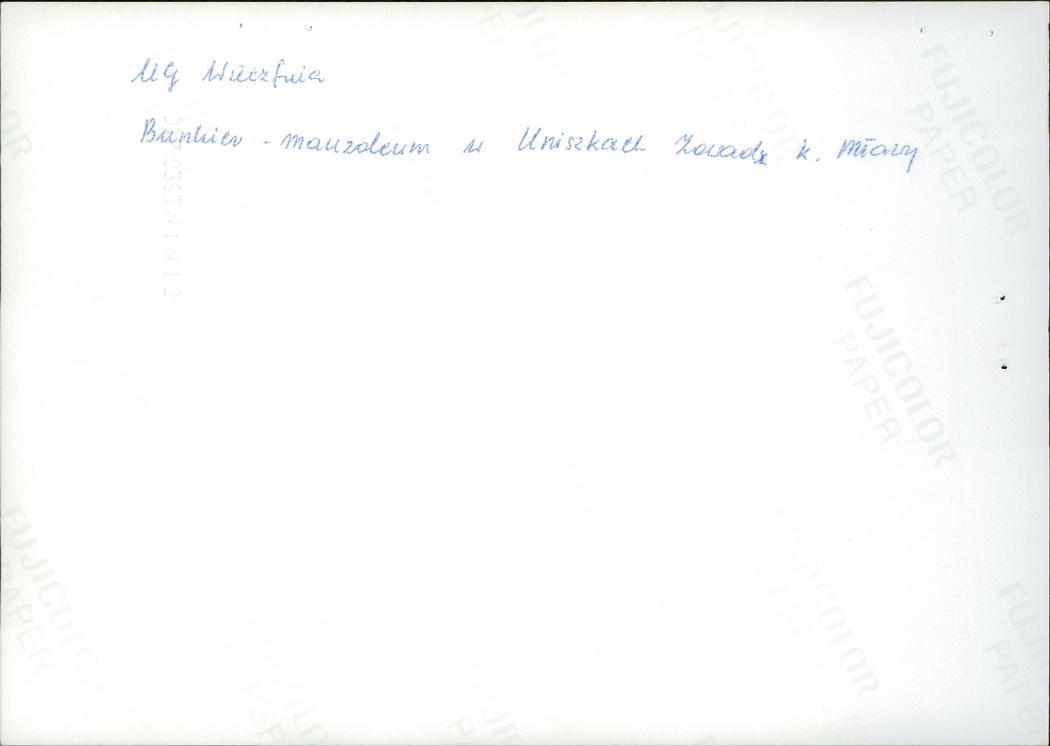 UG Wieczfnia
Bunkier - mauzoleum w Uniszkach Zawadz. k. Mławy
FUJICOLOR
PAPER
FUJICOLOR
PAPER
FUJICOLOR
PAPER
FUJICOLOR
PAPER